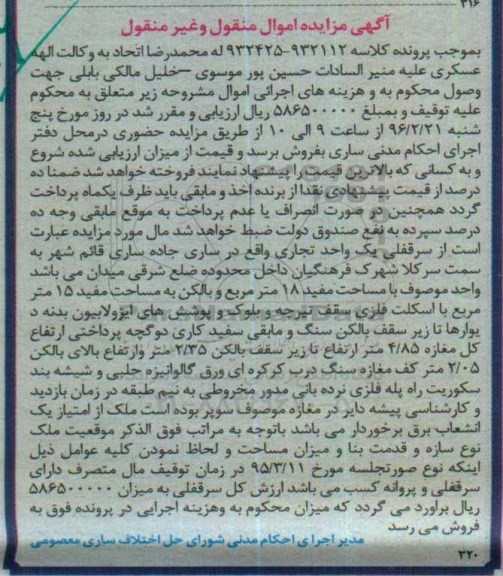 ۳۱۶
آگهی مزایده اموال منقول وغیر منقول
بموجب پرونده کلاسه ۹۳۲۱۱۲-۹۳۲۴۲۵ له محمدرضا اتحاد به وکالت الهه
عسکری علیه منیر السادات حسین پور موسوی –خلیل مالکی بابلی جهت
وصول محکوم به و هزینه های اجرائی اموال مشروحه زیر متعلق به محکوم
علیه توقیف و بمبلغ ۵۸۶۵۰۰۰۰۰ ریال ارزیابی و مقرر شد در روز مورخ پنج
شنبه ۹۶/۲/۲۱ از ساعت ۹ الی ۱۰ از طریق مزایده حضوری درمحل دفتر
اجرای احکام مدنی ساری بفروش برسد و قیمت از میزان ارزیابی شده شروع
و به کسانی که بالاترین قیمت را پیشنهاد نمایند فروخته خواهد شد ضمنا ده
درصد از قیمت پیشنهادی نقدا از برنده اخذ و مابقی باید ظرف یکماه پرداخت
گردد همچنین در صورت انصراف یا عدم پرداخت به موقع مابقی وجه ده
درصد سپرده به نفع صندوق دولت ضبط خواهد شد مال مورد مزایده عبارت
است از سرقفلی یک واحد تجاری واقع در ساری جاده ساری قائم شهر به
سمت سرکلا شهرک فرهنگیان داخل محدوده ضلع شرقی میدان می باشد
واحد موصوف با مساحت مفید ۱۸ متر مربع و بالکن به مساحت مفید ۱۵ متر
مربع با اسکلت فلزی سقف تیرچه و بلوک و پوشش های ایزولابیون بدنه د
یوارها تا زیر سقف بالکن سنگ و مابقی سفید کاری دوگچه پرداختی ارتفاع
کل مغازه ۴/۸۵ متر ارتفاع تا زیر سقف بالکن ۲/۳۵ متر وارتفاع بالای بالکن
۲/۰۵ متر کف مغازه سنگ درب کرکره ای ورق گالوانیزه حلبی و شیشه بند
سکوریت راه پله فلزی نرده بانی مدور مخروطی به نیم طبقه در زمان بازدید
و کارشناسی پیشه دایر در مغازه موصوف سوپر بوده است ملک از امتیاز یک
انشعاب برق برخوردار می باشد باتوجه به مراتب فوق الذکر موقعیت ملک
نوع سازه و قدمت بنا و میزان مساحت و لحاظ نمودن کلیه عوامل ذیل
اینکه نوع صورتجلسه مورخ ۹۵/۳/۱۱ در زمان توقیف مال متصرف دارای
سرقفلی و پروانه کسب می باشد ارزش کل سرقفلی به میزان ۵۸۶۵۰۰۰۰۰
ریال براورد می گردد که میزان محکوم به وهزینه اجرایی در پرونده فوق به
فروش می رسد
مدیر اجرای احکام مدنی شورای حل اختلاف ساری معصومی
۳۲۰